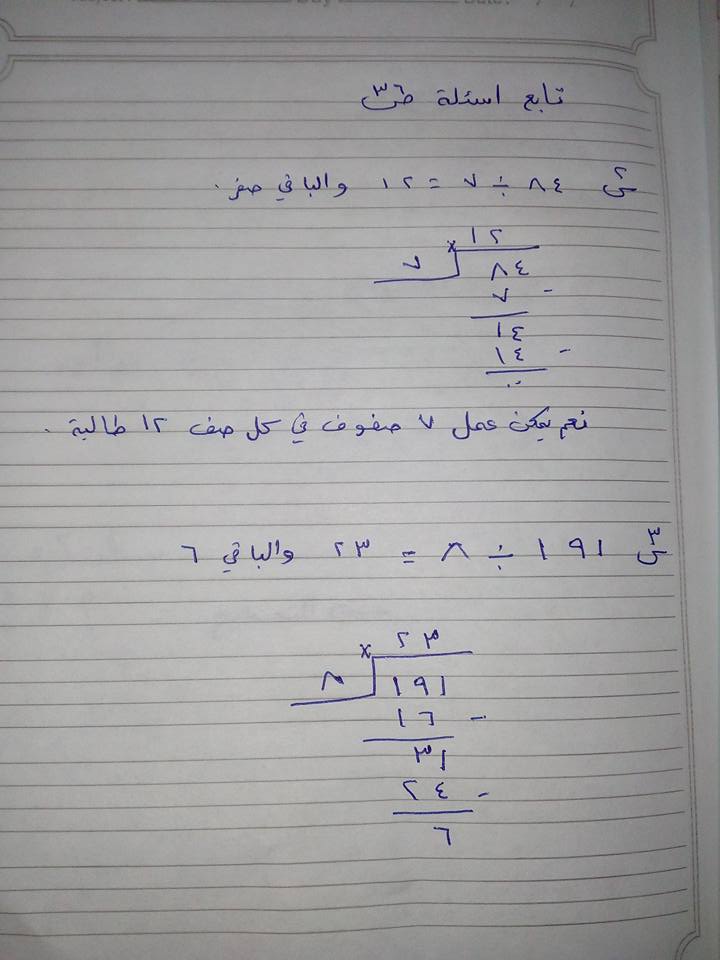 تابع اسئلة ص٣٦
س٢ ٨٤ ÷ ٧ = ١٢ والباقي صفر.
١٢
×
٧ ٨٤
٧ -
١٤
١٤ -
٠٠
نعم يمكن عمل ٧ صفوف في كل صف ١٢ طالبة .
س٣ ١٩١ ÷ ٨ = ٢٣ والباقي ٦
٢٣
×
٨ ١٩١
١٦ -
٣١
٢٤ -
٦